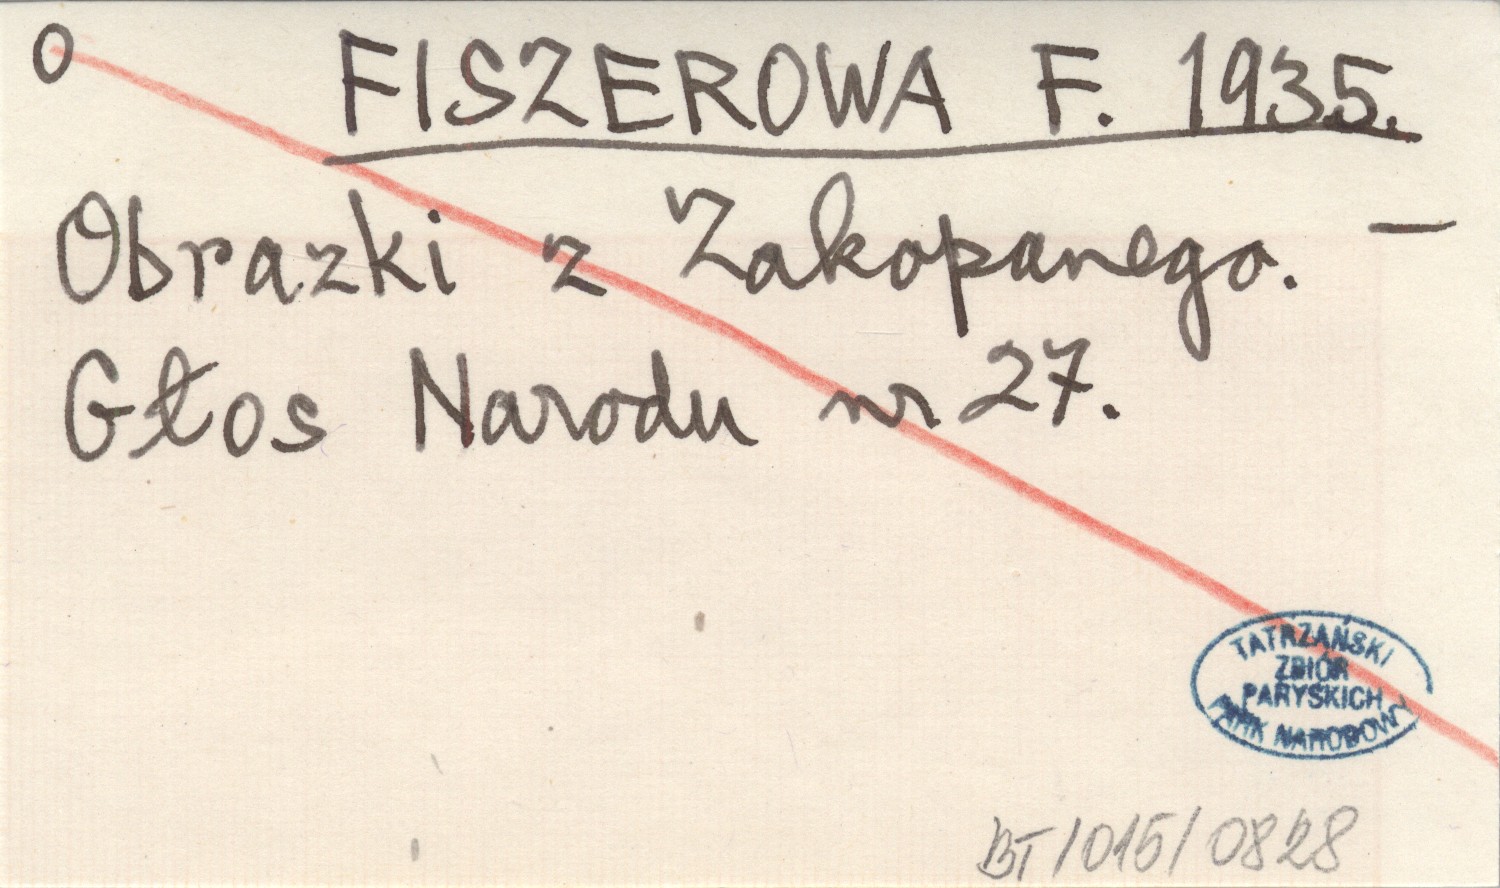 O FISZEROWA F. 1935.
Obrazki z Zakopanego. —
Głos Narodu nr 27.
TATRZAŃSKI
ZBIÓR
PARYSKICH
PARK NARODOWY
BT/015/0828